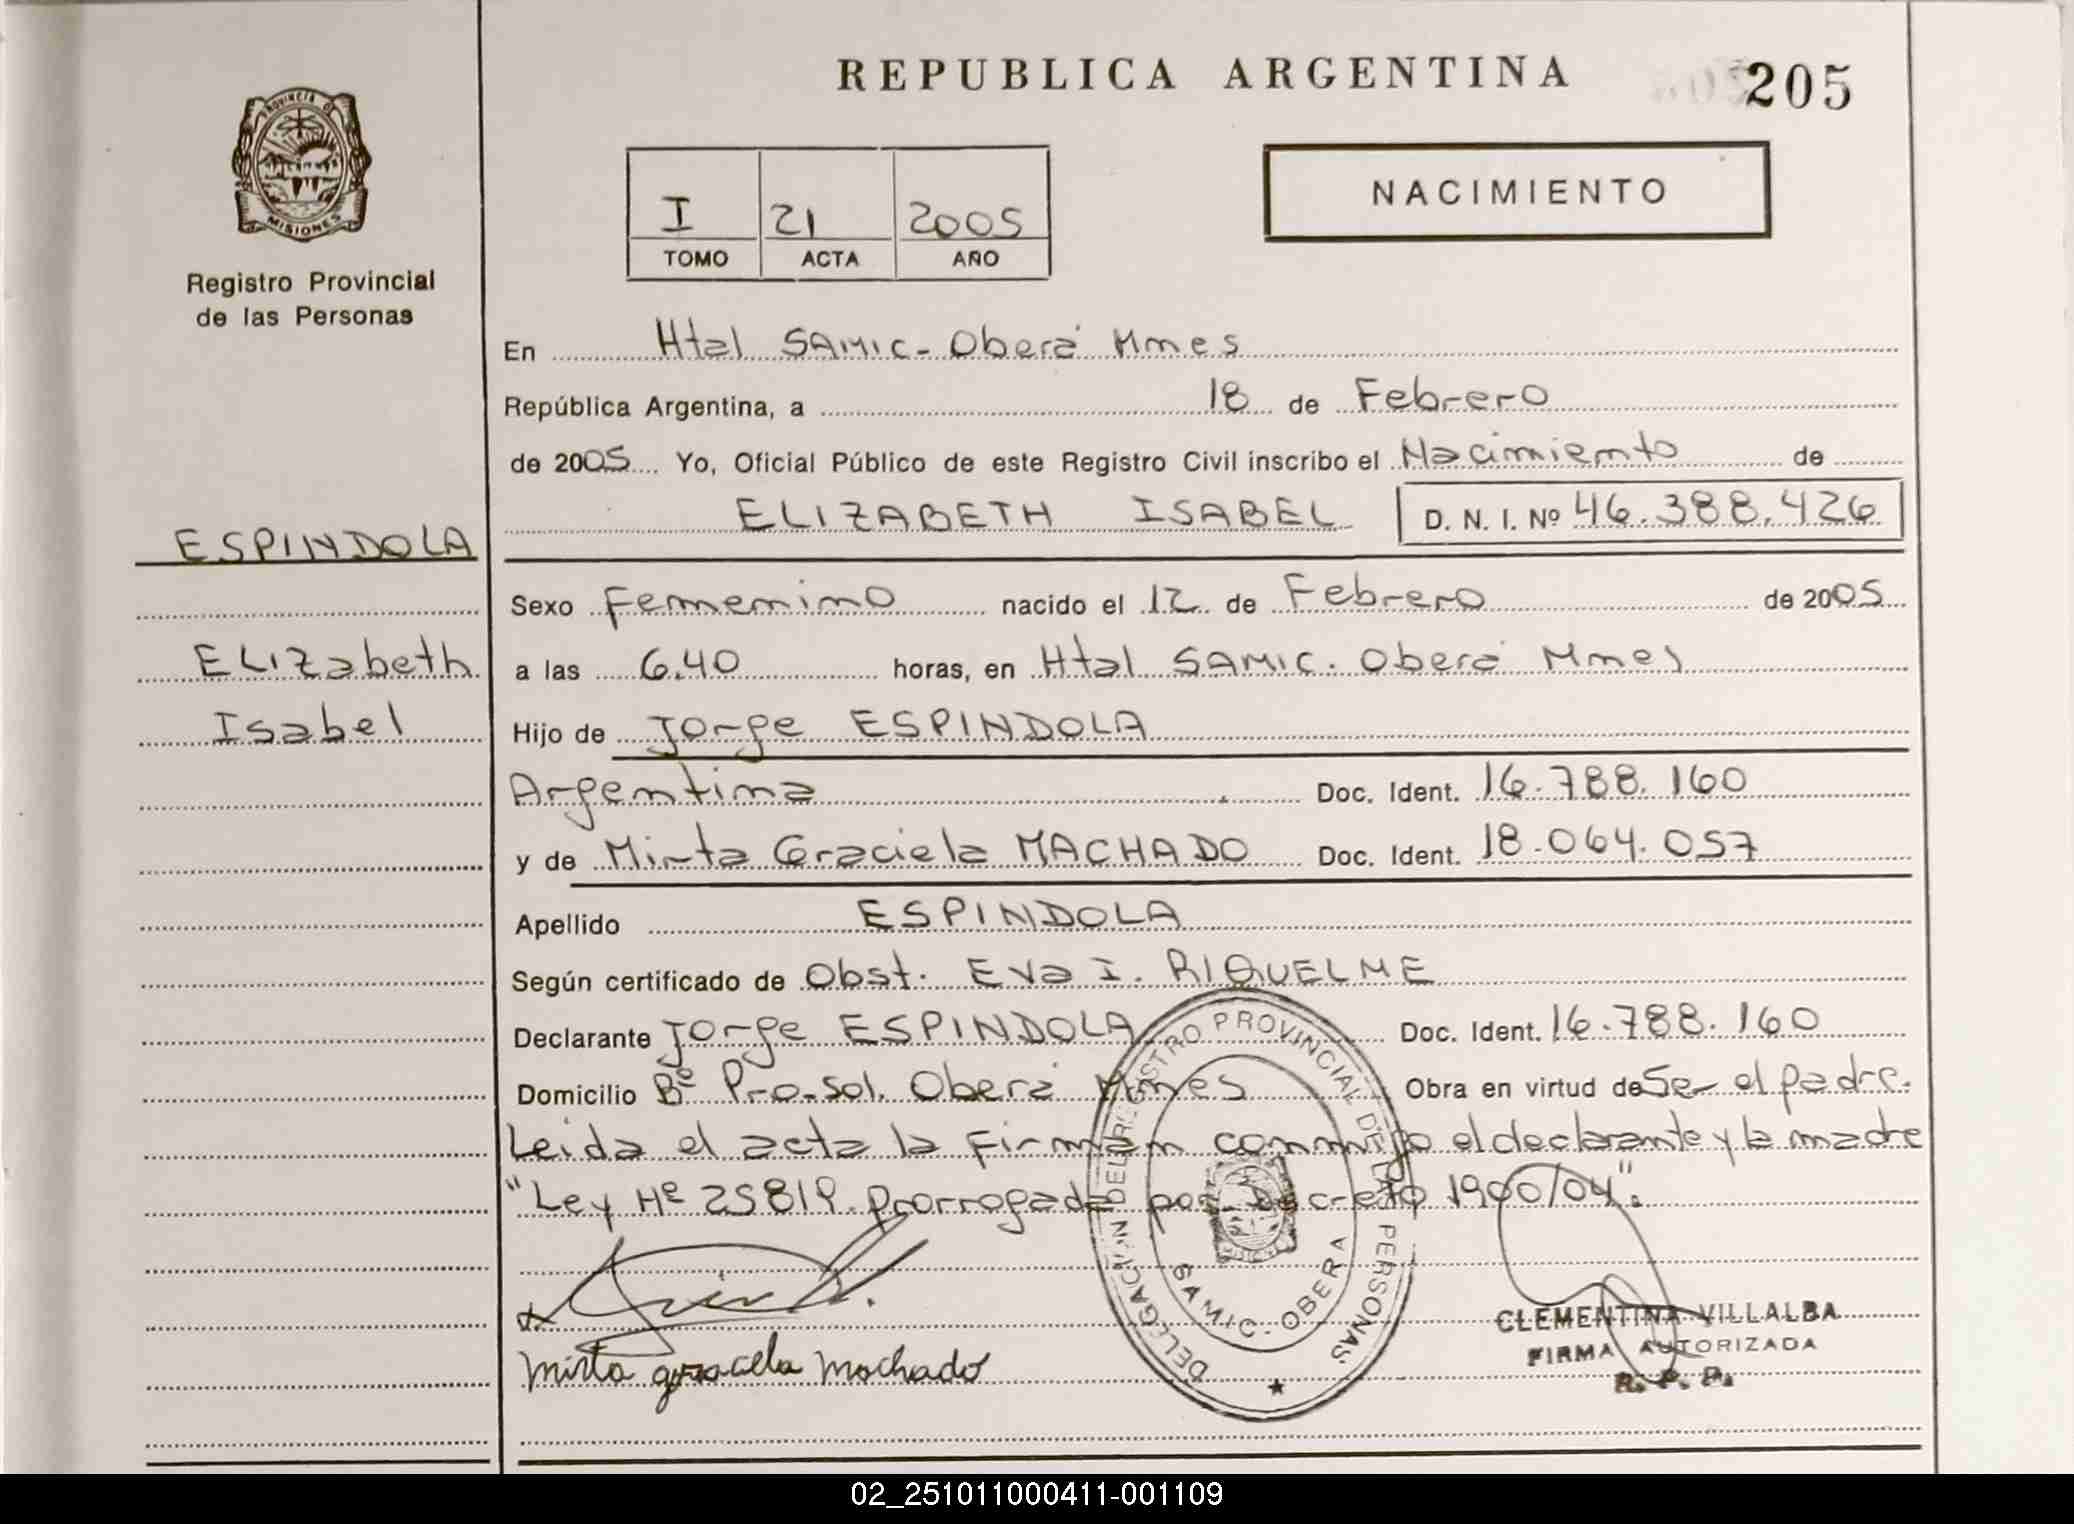 REPUBLICA ARGENTINA
205
PROVINCIA DE
MISIONES
Registro Provincial
de las Personas
I 21 2005
TOMO ACTA AÑO
NACIMIENTO
En Htal SAMIC - Oberá Mnes
República Argentina, a 18 de Febrero
de 2005 Yo, Oficial Público de este Registro Civil inscribo el Nacimiento de
ELIZABETH ISABEL D. N. I. Nº 46.388.426
ESPINDOLA
Elizabeth
Isabel
Sexo Femenino nacido el 12 de Febrero de 2005
a las 6.40 horas, en Htal SAMIC. Oberá Mnes
Hijo de Jorge ESPINDOLA
Argentina Doc. Ident. 16.788.160
y de Mirta Graciela MACHADO Doc. Ident. 18.064.057
Apellido ESPINDOLA
Según certificado de Obst. Eva I. RIQUELME
Declarante Jorge ESPINDOLA Doc. Ident. 16.788.160
Domicilio Bº Pro-sol. Oberá Mnes Obra en virtud de Ser el padre.
Leida el acta la firman conmigo el declarante y la madre
"Ley Nº 25819 prorrogada por Decreto 1900/04".
DELEGACION DEL REGISTRO PROVINCIAL DE LAS PERSONAS
SAMIC - OBERA
mirta graciela Machado
CLEMENTINA VILLALBA
FIRMA AUTORIZADA
R. P. P.
02_251011000411-001109